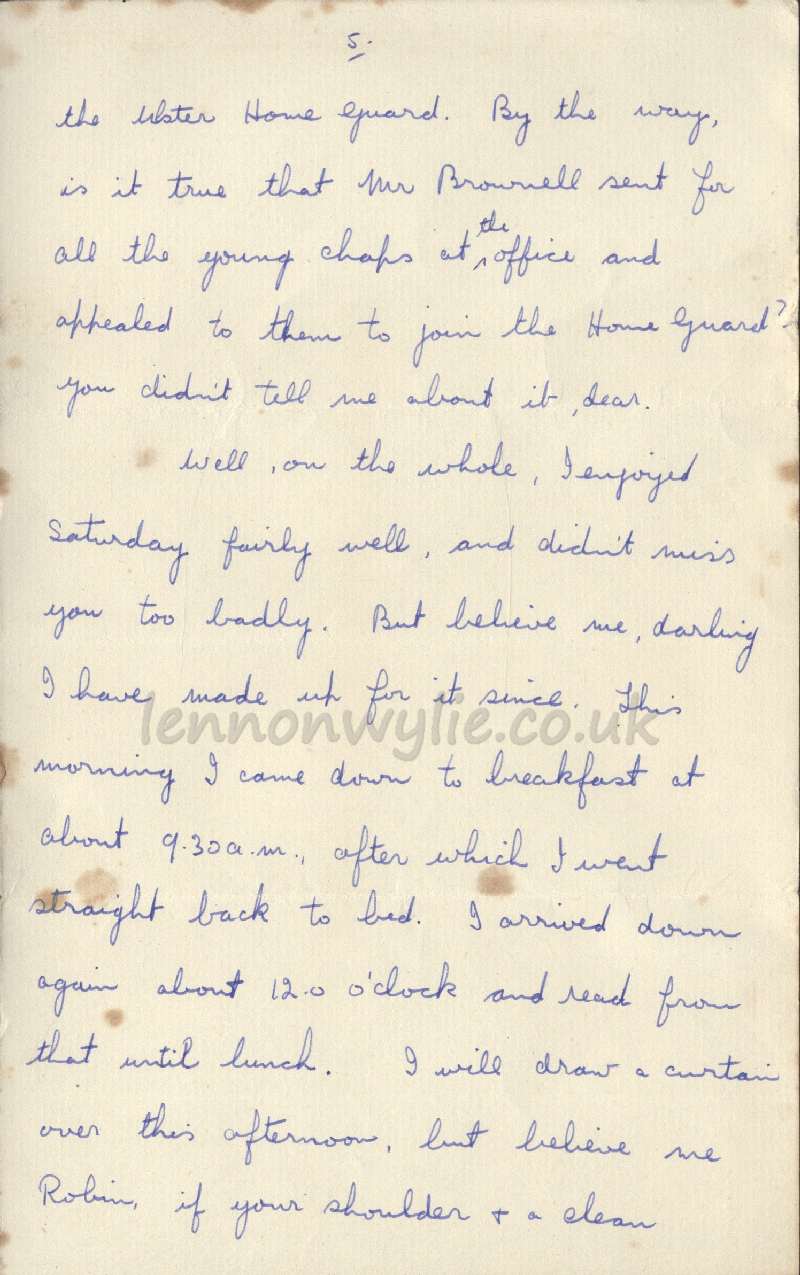 5.
the Ulster Home Guard. By the way,
is it true that Mr Brownell sent for
all the young chaps at the office and
appealed to them to join the Home Guard?
you didn't tell me about it, dear.
Well, on the whole, I enjoyed
Saturday fairly well, and didn't miss
you too badly. But believe me, darling
I have made up for it since. This
lennonwylie.co.uk
morning I came down to breakfast at
about 9.30 a.m., after which I went
straight back to bed. I arrived down
again about 12.0 o'clock and read from
that until lunch. I will draw a curtain
over this afternoon, but believe me
Robin, if your shoulder + a clean